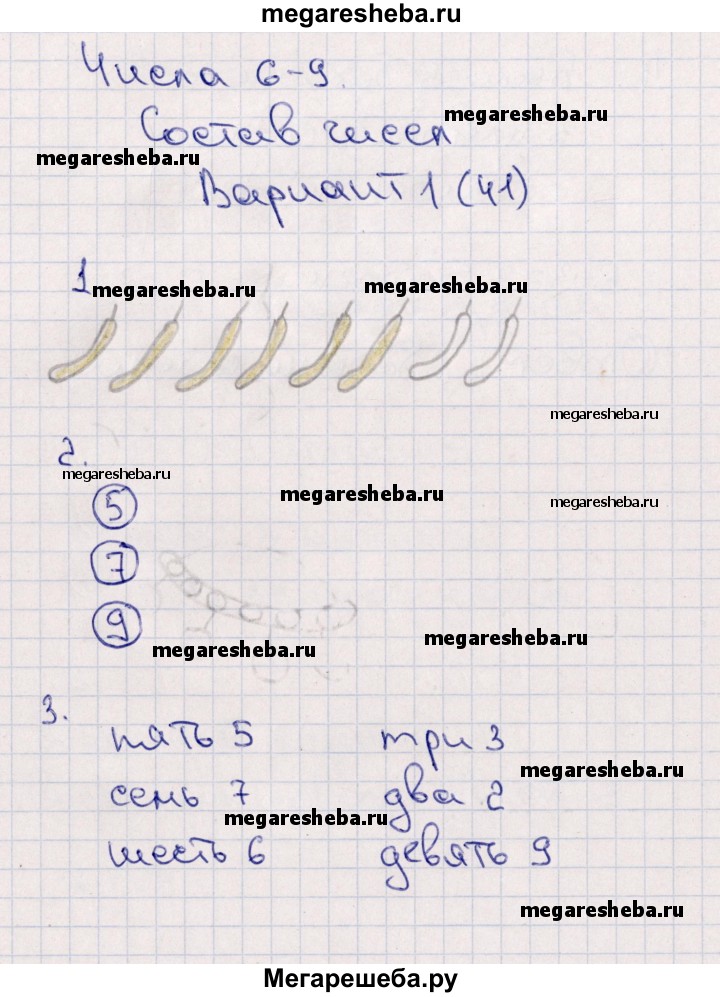 megaresheba.ru
Числа 6-9.
megaresheba.ru
Состав чисел
megaresheba.ru
Вариант 1 (41)
1
megaresheba.ru megaresheba.ru
megaresheba.ru
2.
megaresheba.ru
megaresheba.ru megaresheba.ru
5
7
9
megaresheba.ru
megaresheba.ru
3.
пять 5 три 3
megaresheba.ru
семь 7 два 2
megaresheba.ru
шесть 6 девять 9
megaresheba.ru
Мегарешеба.ру